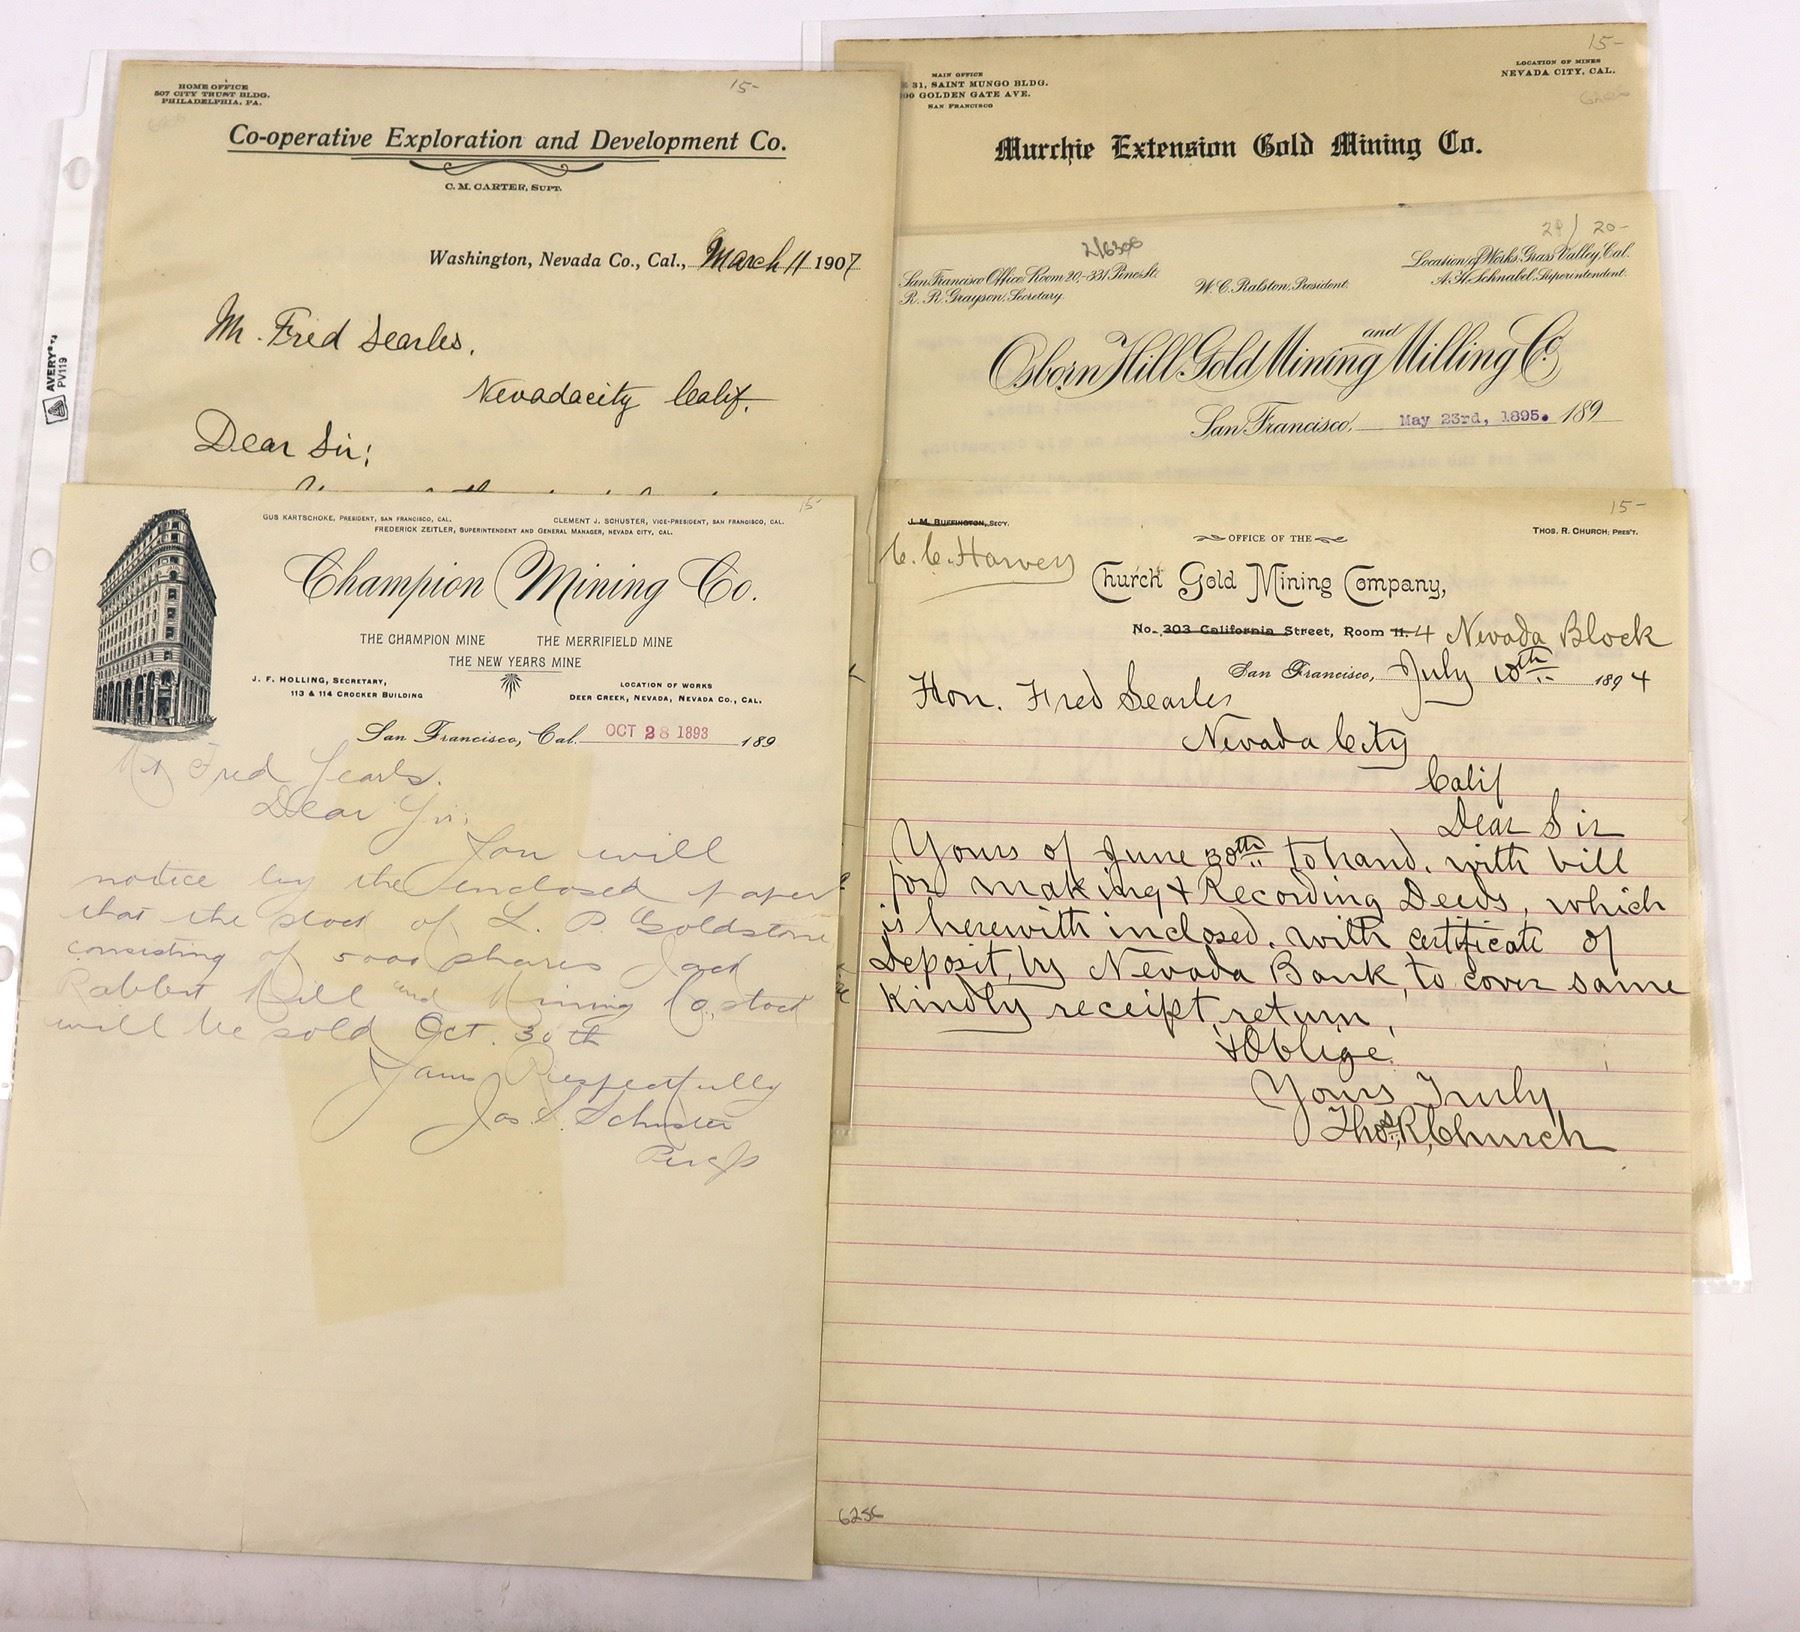 HOME OFFICE
507 CITY TRUST BLDG.
PHILADELPHIA, PA.
15-
Co-operative Exploration and Development Co.
C. M. CARTER, SUPT.
Washington, Nevada Co., Cal., March 11 1907
Mr. Fred Searles,
Nevadacity Calif.
Dear Sir;
AVERY
PV119
MAIN OFFICE
31, SAINT MUNGO BLDG.
GOLDEN GATE AVE.
SAN FRANCISCO
15-
LOCATION OF MINES
NEVADA CITY, CAL.
Murchie Extension Gold Mining Co.
20-
San Francisco Office, Room 20-331 Pine St.
R. R. Grayson, Secretary.
W. C. Ralston, President.
Location of Works, Grass Valley, Cal.
A. H. Schnabel, Superintendent.
Osborn Hill Gold Mining and Milling Co.
San Francisco, May 23rd, 1895. 189
15-
GUS KARTSCHOKE, PRESIDENT, SAN FRANCISCO, CAL.
CLEMENT J. SCHUSTER, VICE-PRESIDENT, SAN FRANCISCO, CAL.
FREDERICK ZEITLER, SUPERINTENDENT AND GENERAL MANAGER, NEVADA CITY, CAL.
Champion Mining Co.
THE CHAMPION MINE THE MERRIFIELD MINE
THE NEW YEARS MINE
J. F. HOLLING, SECRETARY,
113 & 114 CROCKER BUILDING
LOCATION OF WORKS
DEER CREEK, NEVADA, NEVADA CO., CAL.
San Francisco, Cal. OCT 28 1893 189
Mr Fred Searls.
Dear Sir;
You will
notice by the enclosed paper
that the stock of L. P. Goldstone
consisting of 5000 shares Jack
Rabbet Mill and Mining Co, stock
will be sold Oct. 30th
Yours Respectfully
Jos S. Schuster
15-
J. M. BUFFINGTON, SEC'Y.
C. C. Harvey
OFFICE OF THE
THOS. R. CHURCH, PRES'T.
Church Gold Mining Company,
No. 303 California Street, Room 11. 4 Nevada Block
San Francisco, July 10th 1894
Hon. Fred Searles
Nevada City
Calif
Dear Sir
Yours of June 30th to hand, with bill
for making & Recording Deeds, which
is herewith inclosed, with certificate of
Deposit, by Nevada Bank, to cover same
Kindly receipt, return,
& Oblige
Yours Truly
Thos. R. Church
6256